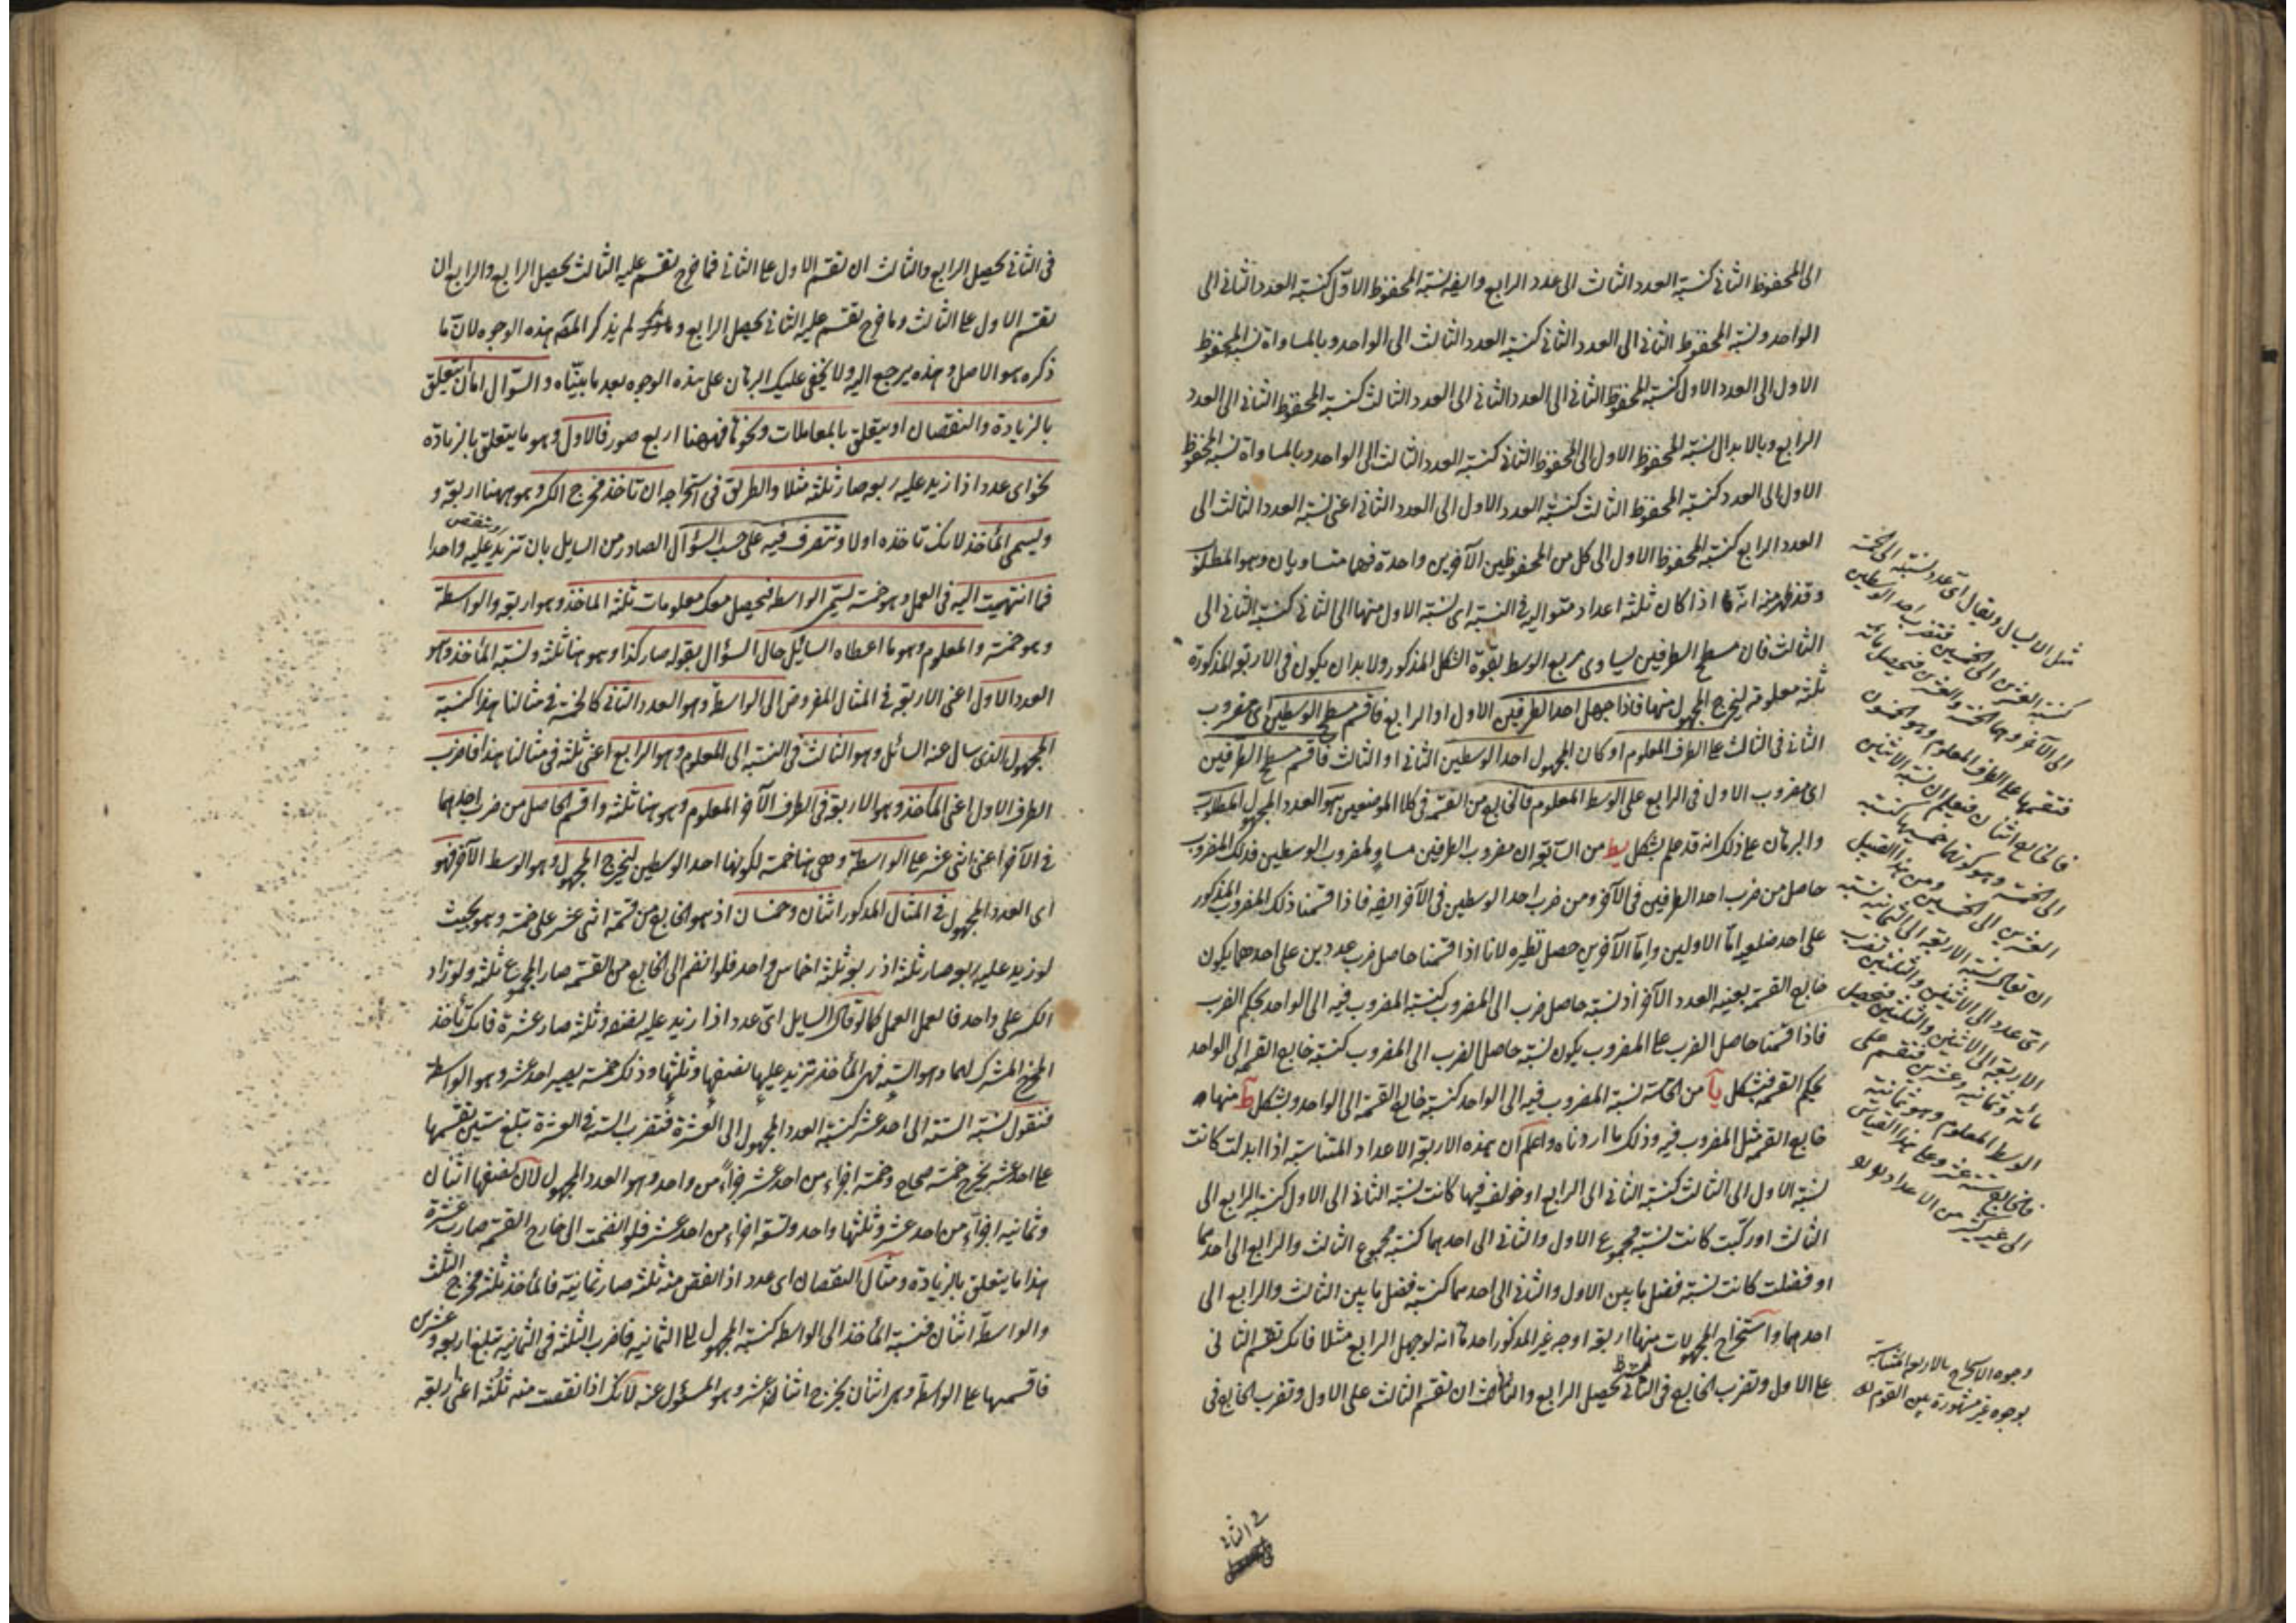 الى المحفوظ الثانى كنسبة العدد الثالث الى عدد الرابع وايضا نسبة المحفوظ الاول كنسبة العدد الثانى الى
الواحد ونسبة المحفوظ الثانى الى العدد الثانى كنسبة العدد الثالث الى الواحد وبالمساواة نسبة المحفوظ
الاول الى العدد الاول كنسبة المحفوظ الثانى الى العدد الثانى الى العدد الثالث كنسبة المحفوظ الثانى الى العدد
الرابع وبالابدال نسبة المحفوظ الاول الى المحفوظ الثانى كنسبة العدد الثالث الى الواحد وبالمساواة نسبة المحفوظ
الاول الى العدد كنسبة المحفوظ الثالث كنسبة العدد الاول الى العدد الثانى اعنى نسبة العدد الثالث الى
العدد الرابع كنسبة المحفوظ الاول الى كل من المحفوظين الآخرين واحدة فهما متساويان وهو المطلوب
وقد ظهر منه انه اذا كان ثلثة اعداد متوالية فى النسبة اى نسبة الاول منها الى الثانى كنسبة الثانى الى
الثالث فان مسطح الطرفين يساوى مربع الوسط بقوة الشكل المذكور ولا بد ان يكون فى الاربعة المذكورة
ثلثة معلومة ليخرج المجهول منها فاذا جهل احد الطرفين الاول او الرابع فاقسم مسطح الوسطين اى مضروب
الثانى فى الثالث على الطرف المعلوم او كان المجهول احد الوسطين الثانى او الثالث فاقسم مسطح الطرفين
اى مضروب الاول فى الرابع على الوسط المعلوم فالخارج من القسمة فى كلا الموضعين هو العدد المجهول المطلوب
والبرهان على ذلك انه قد علم بشكل يط من السابعة ان مضروب الطرفين مساو لمضروب الوسطين فذلك المضروب
حاصل من ضرب احد الطرفين فى الآخر ومن ضرب احد الوسطين فى الآخر ايضا فاذا قسمنا ذلك المضروب المذكور
على احد ضلعى اما الاولين واما الآخرين حصل نظيره لانا اذا قسمنا حاصل ضرب عددين على احدهما يكون
خارج القسمة بعينه العدد الآخر اذ نسبة حاصل ضرب الى المضروب كنسبة المضروب فيه الى الواحد بحكم الضرب
فاذا قسمنا حاصل الضرب على المضروب يكون نسبة حاصل الضرب الى المضروب كنسبة خارج القسمة الى الواحد
بحكم القسمة فبشكل يا من الخامسة نسبة المضروب فيه الى الواحد كنسبة خارج القسمة الى الواحد وبشكل ط منها
خارج القسمة مثل المضروب فيه وذلك ما اردناه واعلم ان هذه الاربعة الاعداد المتناسبة اذا ابدلت كانت
نسبة الاول الى الثالث كنسبة الثانى الى الرابع او خولف فيها كانت نسبة الثانى الى الاول كنسبة الرابع الى
الثالث او ركبت كانت نسبة مجموع الاول والثانى الى احدهما كنسبة مجموع الثالث والرابع الى احدهما
او فضلت كانت نسبة فضل ما بين الاول والثانى الى احدهما كنسبة فضل ما بين الثالث والرابع الى
احدهما واستخراج المجهولات منها اربعة اوجه غير المذكور احدها انه لو جهل الرابع مثلا فانك تقسم الثانى
على الاول وتضرب الخارج فى الثالث يحصل الرابع والثانى ان تقسم الثالث على الاول وتضرب الخارج فى
مثل ان يسال ويقال اى عدد نسبته الى الخمسة
كنسبة العشرين الى الخمسين فتضرب احد الوسطين
الى الآخر وهما الخمسة والعشرين فيحصل مائة
فتقسمها على الطرف المعلوم وهو الخمسون
فالخارج اثنان فيعلم ان نسبة الاثنين
الى الخمسة وهو كونهما خمسيها كنسبة
العشرين الى الخمسين ومن هذا القبيل
ان يقال نسبة الاربعة الى الثمانية كنسبة
اى عدد الى الاثنين والثلثين فتضرب
الاربعة الى الاثنين والثلثين فيحصل
مائة وثمانية وعشرين فتقسم على
الوسط المعلوم وهو ثمانية
فالخارج ستة عشر وعلى هذا القياس
الى غير كثير من الاعداد
وجوه الاستخراج بالاربعة المتناسبة
بوجوه غير مشهورة بين القوم
فى الثانى
فى الثانى يحصل الرابع والثالث ان تقسم الاول على الثانى فما خرج تقسم عليه الثالث يحصل الرابع والرابع ان
تقسم الاول على الثالث وما خرج تقسم عليه الثانى يحصل الرابع لم يذكر المصنف هذه الوجوه لان ما
ذكره هو الاصل وهذه يرجع اليه ولا يخفى عليك البرهان على هذه الوجوه بعد ما بيناه والسؤال اما ان يتعلق
بالزيادة والنقصان او يتعلق بالمعاملات ونحوها فههنا اربع صور فالاول وهو ما يتعلق بالزيادة
نحو اى عدد اذا زيد عليه ربعه صار ثلثة مثلا والطريق فى استخراجه ان تاخذ مخرج الكسر وهو ههنا اربعة و
ويسمى المأخذ لانك تاخذه اولا وتتصرف فيه على حسب السؤال الصادر من السايل بان تزيد عليه واحدا
وينقص
فما انتهيت اليه فى العمل وهو خمسة يسمى الواسطة فيحصل معك معلومات ثلثة الماخذ وهو اربعة والواسطة
وهو خمسة والمعلوم وهو ما اعطاه السايل حال السؤال بقوله صار كذا وهو هنا ثلثة ونسبة المأخذ وهو
العدد الاول اعنى الاربعة فى المثال المفروض الى الواسطة وهو العدد الثانى كالخمسة فى مثالنا هذا كنسبة
المجهول الذى سال عنه السائل وهو الثالث فى النسبة الى المعلوم وهو الرابع اعنى ثلثة فى مثالنا هذا فاضرب
الطرف الاول اعنى المأخذ وهو الاربعة فى الطرف الآخر المعلوم وهو هنا ثلثة واقسم الحاصل من ضرب احدهما
فى الآخر اعنى اثنى عشر على الواسطة وهى هنا خمسة لكونها احد الوسطين ليخرج المجهول وهو الوسط الآخر فهو
اى العدد المجهول فى المثال المذكور اثنان وخمسان اذ هو الخارج من قسمة اثنى عشر على خمسة وهو بحيث
لو زيد عليه ربعه صار ثلثة اذ ربعه ثلثة اخماس واحد فلو انضم الى الخارج من القسمة صار المجموع ثلثة ولو زاد
الكسر على واحد فالعمل العمل كما لو قال السايل اى عدد اذا زيد عليه نصفه وثلثه صار عشرة فانك تأخذ
المخرج المشترك لهما وهو الستة فهى المأخذ تزيد عليها نصفها وثلثها وذلك خمسة يصير احد عشر وهو الواسطة
فنقول نسبة الستة الى احد عشر كنسبة العدد المجهول الى العشرة فتضرب الستة فى العشرة تبلغ ستين تقسمها
على احد عشر يخرج خمسة صحاح وخمسة اجزاء من احد عشر جزءا من واحد وهو العدد المجهول لان نصفها اثنان
وثمانية اجزاء من احد عشر وثلثها واحد وتسعة اجزاء من احد عشر فلو انضمت الى خارج القسمة صارت عشرة
هذا ما يتعلق بالزيادة ومثال النقصان اى عدد اذا نقص منه ثلثه صار ثمانية فالمأخذ ثلثة مخرج الثلث
والواسطة اثنان فنسبة المأخذ الى الواسطة كنسبة المجهول الى الثمانية فاضرب الثلثة فى الثمانية تبلغ اربعة وعشرين
فاقسمها على الواسطة وهى اثنان يخرج اثنا عشر وهو المسئول عنه لانك اذا نقصت منه ثلثه اعنى اربعة